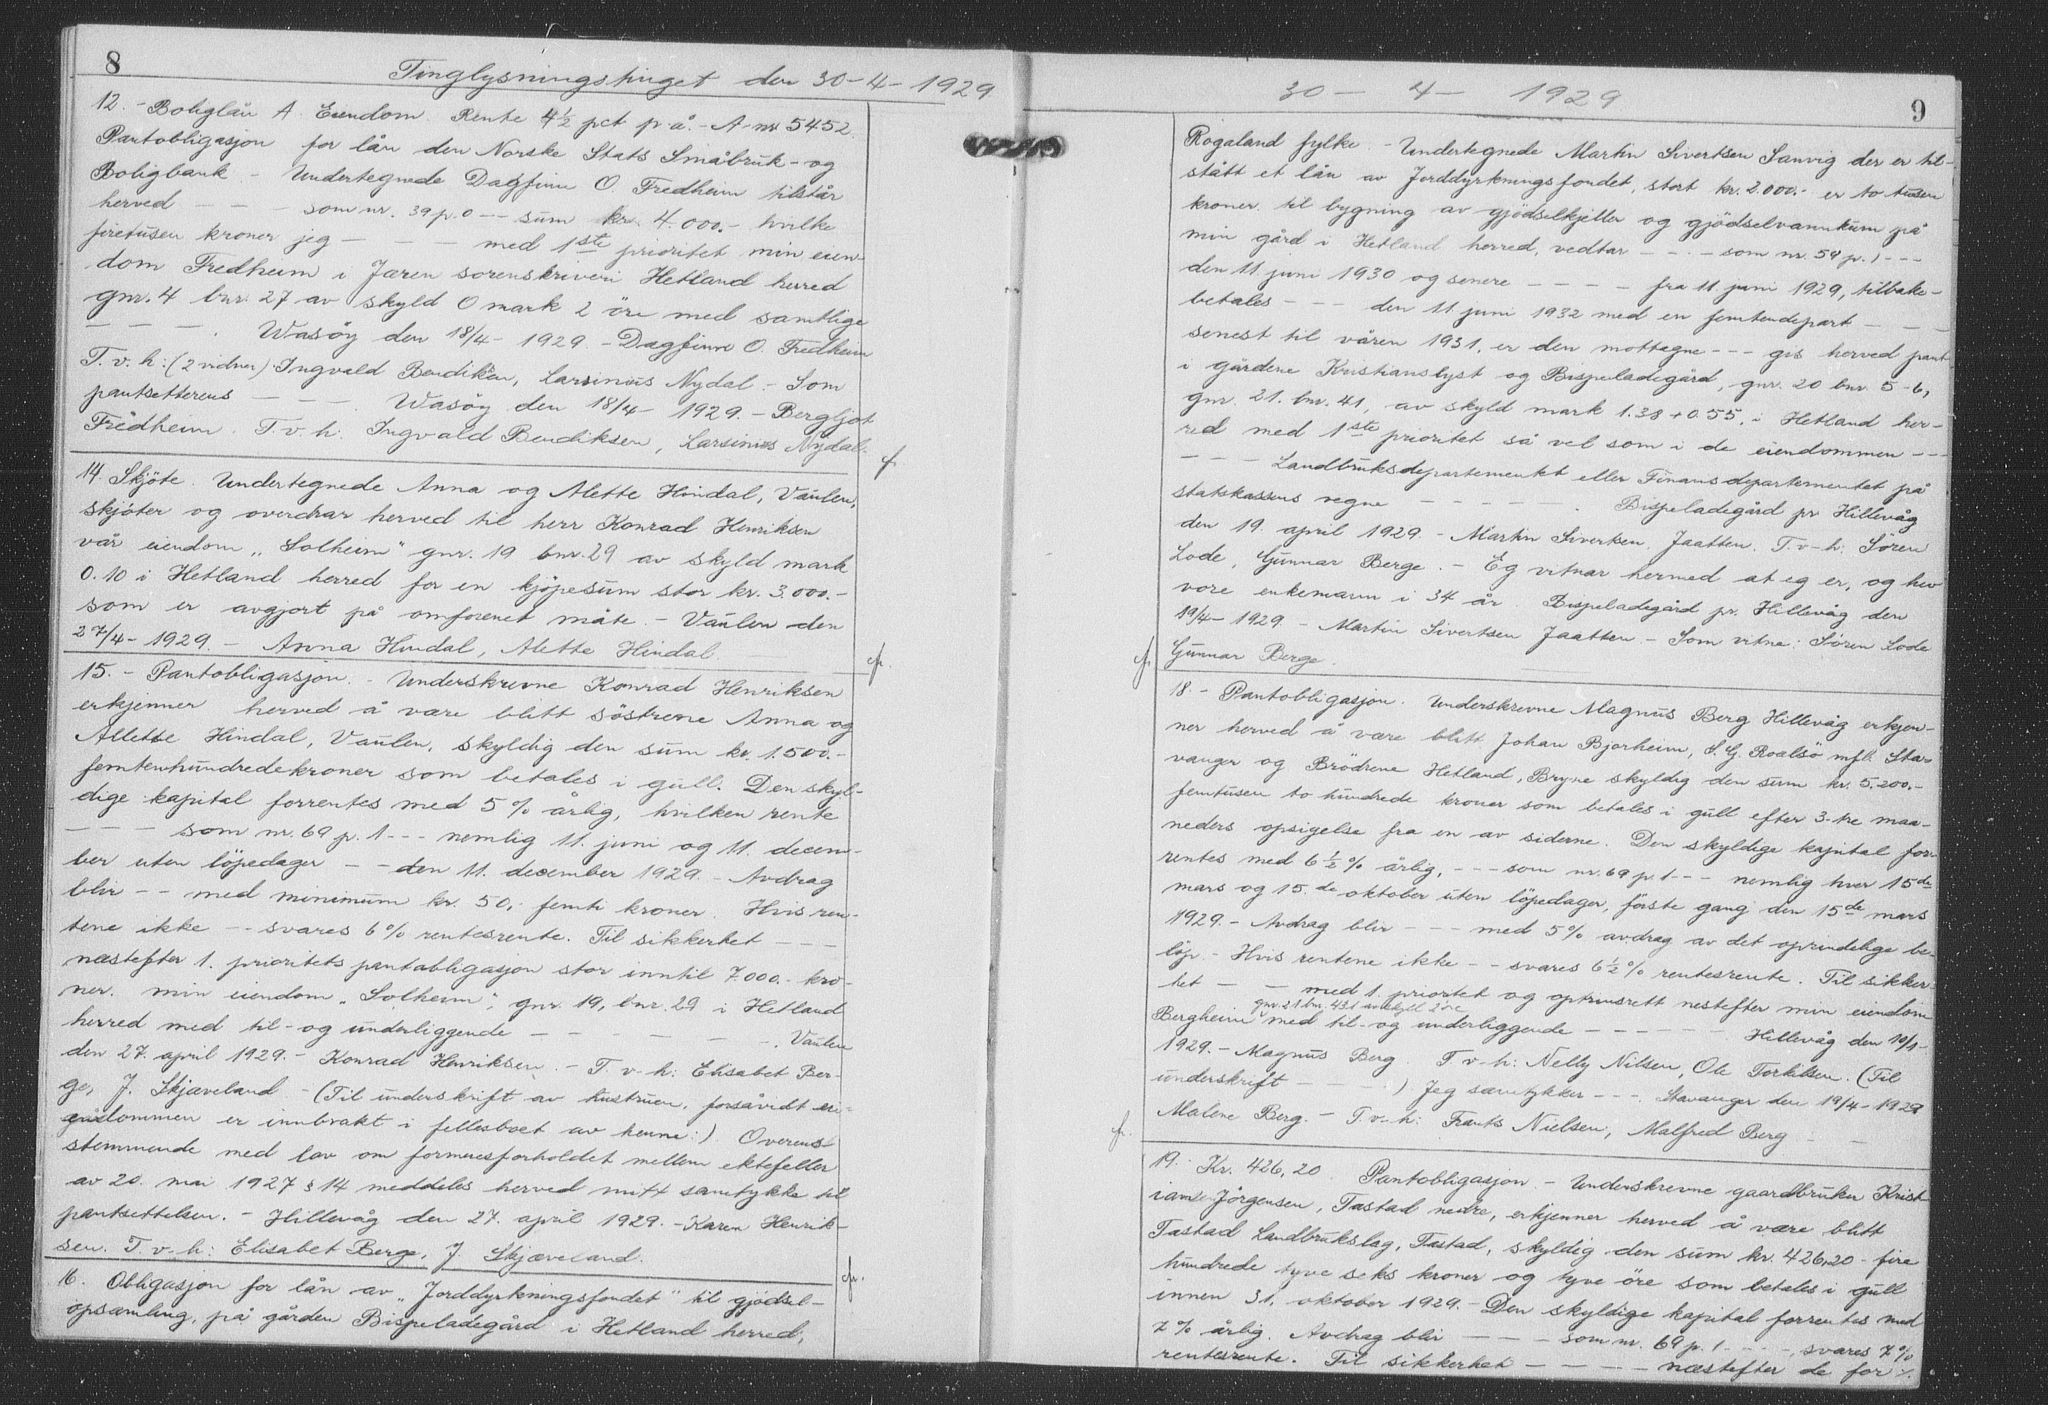 8
Tinglysningstinget den 30-4-1929
12. - Boliglån A. Eiendom. Rente 4½ pct p. å. - A-nr 5452.
Pantobligasjon for lån den Norske Stats Småbruk- og
Boligbank. - Undertegnede Dagfinn O. Fredheim tilstår
herved - - - som nr. 39 p. 0 - - sum kr. 4.000.- hvilke
firetusen kroner jeg - - - med 1ste prioritet min eien-
dom Fredheim i Jæren sorenskriveri Hetland herred
gnr. 4 bnr. 27 av skyld 0 mark 2 öre med samtlige
- - - . Wasöy den 18/4 - 1929. - Dagfinn O. Fredheim
T. v. h: (2 vidner) Ingvald Bendiksen, Larsinius Nydal. - Som
pantsetterens - - - . Wasöy den 18/4 - 1929. - Bergljot
Frêdheim. T. v. h. Ingvald Bendiksen, Larsinius Nydal.
cf.
14. Skjöte. Undertegnede Anna og Alette Hindal, Vaulen,
skjöter og overdrar herved til herr Konrad Henriksen
vår eiendom "Solheim" gnr. 19 bnr. 29 av skyld mark
0.10 i Hetland herred for en kjöpesum stor kr. 3.000.-
som er avgjort på omforenet måte. - Vaulen den
27/4 - 1929. - Anna Hindal, Alette Hindal.
cfr.
15. - Pantobligasjon. - Underskrevne Konrad Henriksen
erkjenner herved å være blitt söstrene Anna og
Allette Hindal, Vaulen, skyldig den sum kr. 1.500.-
femtenhundredekroner som betales i gull. Den skyl-
dige kapital forrentes med 5 % årlig, hvilken rente
- - - som nr. 69 p. 1 - - - nemlig 11. juni og 11. decem-
ber uten löpedager - - den 11. december 1929. - Avdrag
blir - - med minimum kr. 50,- femti kroner. Hvis ren-
tene ikke - - svares 6 % rentesrente. Til sikkerhet - - -
næstefter 1. prioritets pantobligasjon stor inntil 7.000.- kro-
ner. min eiendom "Solheim", gnr. 19, bnr. 29 i Hetland
herred med til- og underliggende - - - - - . Vaulen
den 27. april 1929. - Konrad Henriksen. - T. v. h: Elisabet Ber-
ge, J. Skjæveland - (Til underskrift av hustruen, forsåvidt ei-
endommen er innbrakt i fellesboet av henne:) Overens-
stemmende med lov om formuesforholdet mellem ektefeller
av 20. mai 1927 § 14 meddeles herved mitt samtykke til
pantsettelsen. - Hillevåg den 27. april 1929. - Karen Henrik-
sen. T. v. h: Elisabet Berge, J. Skjæveland.
cfr.
16. Obligasjon for lån av "Jorddyrkningsfondet" til gjödsel-
opsamling, på gården Bispeladegård i Hetland herred,
30 - 4 - 1929
9
Rogaland fylke. - Undertegnede Martin Sivertsen Sanvig der er til-
stått et lån av Jorddyrkningsfondet, stort kr. 2.000.- er to tusen
kroner til bygning av gjödselkjeller og gjödselvannkum på
min gård i Hetland herred, vedtar - - - som nr. 59 p. 1 - - -
den 11. juni 1930 og senere - - - - fra 11. juni 1929, tilbake-
betales - - - den 11. juni 1932 med en femtendepart - - -
senest til våren 1931, er den mottagne - - - gis herved pant
i gårdene Kristianslyst og Bispeladegård, gnr. 20 bnr. 5-6,
gnr. 21. bnr. 41, av skyld mark 1.38 + 0.55, i Hetland her-
red med 1ste prioritet så vel som i de eiendommen - - -
- - - Landbruksdepartementet eller Finansdepartementet på
statskassens regne - - - - - . Bispeladegård pr Hillevåg
den 19. april 1929. - Martin Sivertsen Jaatten. T. v. h: Sören
Lode, Gunnar Berge. - Eg vitnar hermed at eg er, og hev
vore enkemann i 34 år. Bispeladegård pr. Hillevåg den
19/4 - 1929. - Martin Sivertsen Jaatten - Som vitne: Sören Lode
Gunnar Berge.
cfr.
18. - Pantobligasjon. Underskrevne Magnus Berg Hillevåg erkjen-
ner herved å være blitt Johan Bjorheim, S. G. Roalsö mfl. Sta-
vanger og Brödrene Hetland, Bryne skyldig den sum kr. 5.200.-
femtusen to hundrede kroner som betales i gull efter 3-tre maa-
neders opsigelse fra en av siderne. Den skyldige kapital for-
rentes med 6½ % årlig, - - - som nr. 69 p. 1 - - - nemlig hver 15de
mars og 15.de oktober uten löpedager, förste gang den 15de mars
1929. - Avdrag blir - - - med 5 % avdrag av det oprindelige be-
löp. - Hvis rentene ikke - - svares 6½ % rentesrente. Til sikker-
het - - med 1. priortet og optrinsrett nestefter min eiendom
gnr. 21 bnr. 431 av skyld 2 öre
Bergheim med til- og underliggende - - - - - Hillevåg den 10/1-
1929. - Magnus Berg. T. v. h: Nelly Nilsen, Ole Torkilsen. (Til
underskrift - - - ) Jeg samtykker - - - . Stavanger den 19/4 - 1929
Malene Berg. - T. v. h: Frants Nielsen, Malfred Berg. - -
cfr.
19. Kr. 426,20. Pantobligasjon. - Underskrevne gaardbruker Krist-
iansen Jörgensen, Tastad nedre, erkjenner herved å være blitt
Tastad Landbrukslag, Tastad, skyldig den sum kr. 426,20 - fire
hundrede tyve seks kroner og tyve öre som betales i gull
innen 31. oktober 1929. - Den skyldige kapital forrentes med
7 % årlig. Avdrag blir - - - som nr. 69 p. 1 - - - , svares 7 %
rentesrente. Til sikkerhet - - - - næstefter de for ./.